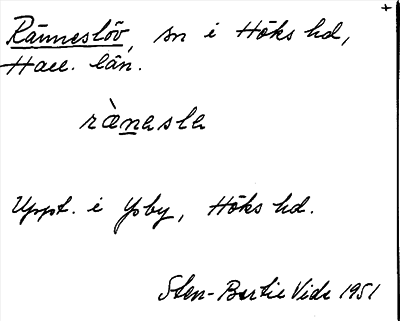 Ränneslöv, sn i Höks hd,
Hall. län.
rànasla
Uppt. i Ysby, Höks hd.
Sten-Bertil Vide 1951